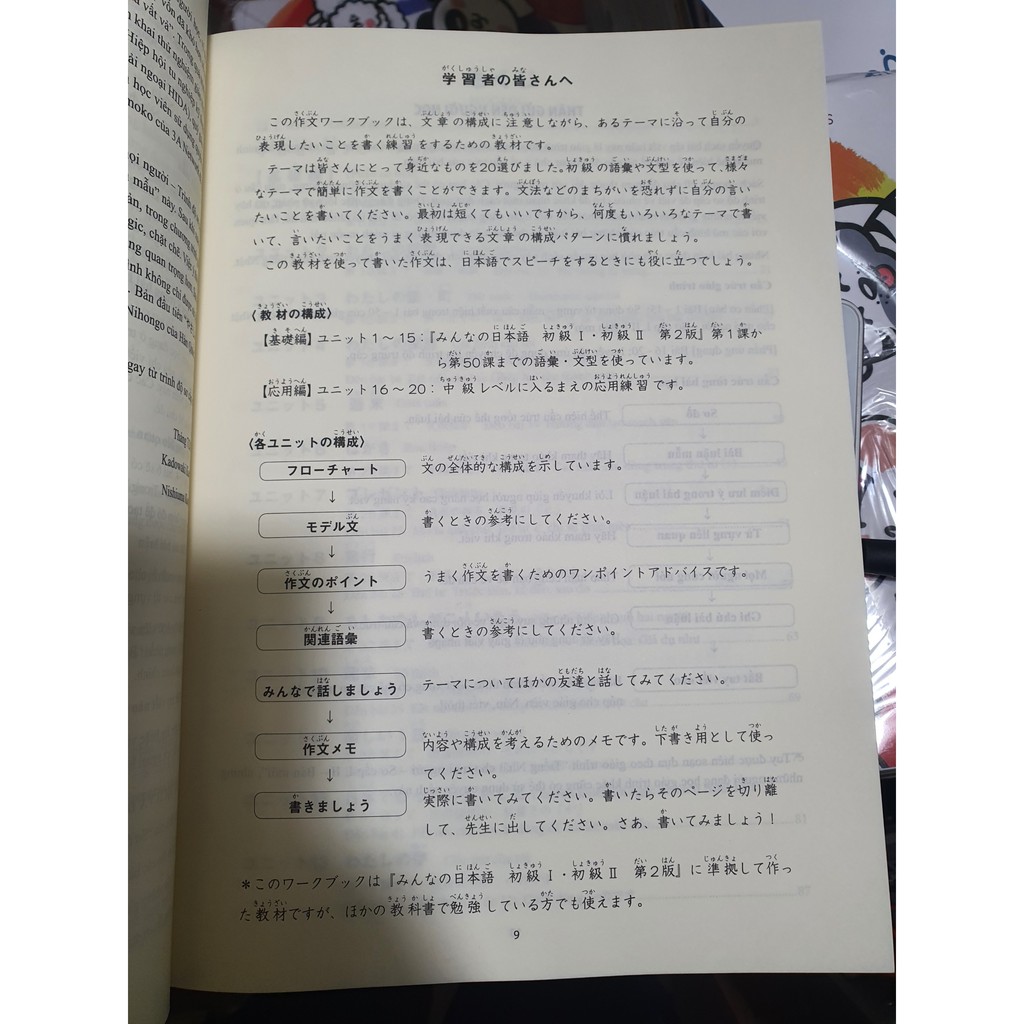 学習者の皆さんへ
この作文ワークブックは、文章の構成に注意しながら、あるテーマに沿って自分の
表現したいことを書く練習をするための教材です。
テーマは皆さんにとって身近なものを20選びました。初級の語彙や文型を使って、様々
なテーマで簡単に作文を書くことができます。文法などのまちがいを恐れずに自分の言い
たいことを書いてください。最初は短くてもいいですから、何度もいろいろなテーマで書
いて、言いたいことをうまく表現できる文章の構成パターンに慣れましょう。
この教材を使って書いた作文は、日本語でスピーチをするときにも役に立つでしょう。
〈教材の構成〉
【基礎編】ユニット1～15：『みんなの日本語 初級Ⅰ・初級Ⅱ 第2版』第1課か
ら第50課までの語彙・文型を使っています。
【応用編】ユニット16～20：中級レベルに入るまえの応用練習です。
〈各ユニットの構成〉
フローチャート 文の全体的な構成を示しています。
↓
モデル文 書くときの参考にしてください。
↓
作文のポイント うまく作文を書くためのワンポイントアドバイスです。
↓
関連語彙 書くときの参考にしてください。
みんなで話しましょう テーマについてほかの友達と話してみてください。
↓
作文メモ 内容や構成を考えるためのメモです。下書き用として使っ
てください。
↓
書きましょう 実際に書いてみてください。書いたらそのページを切り離
して、先生に出してください。さあ、書いてみましょう！
＊このワークブックは『みんなの日本語 初級Ⅰ・初級Ⅱ 第2版』に準拠して作っ
た教材ですが、ほかの教科書で勉強している方でも使えます。
9